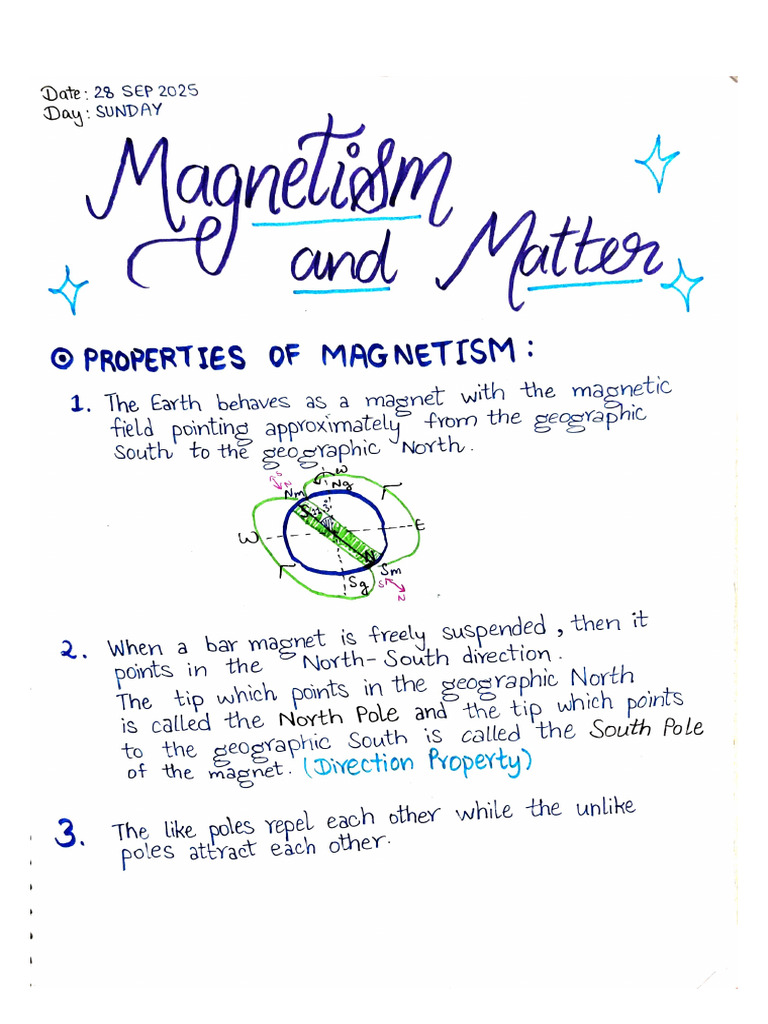 Date: 28 SEP 2025
Day: SUNDAY
Magnetism
and Matter
PROPERTIES OF MAGNETISM:
1. The Earth behaves as a magnet with the magnetic
field pointing approximately from the geographic
South to the geographic North.
W
S N
Nm Ng
S
W E
N
Sm
Sg S
N
2. When a bar magnet is freely suspended, then it
points in the North-South direction.
The tip which points in the geographic North
is called the North Pole and the tip which points
to the geographic South is called the South Pole
of the magnet. (Direction Property)
3. The like poles repel each other while the unlike
poles attract each other.